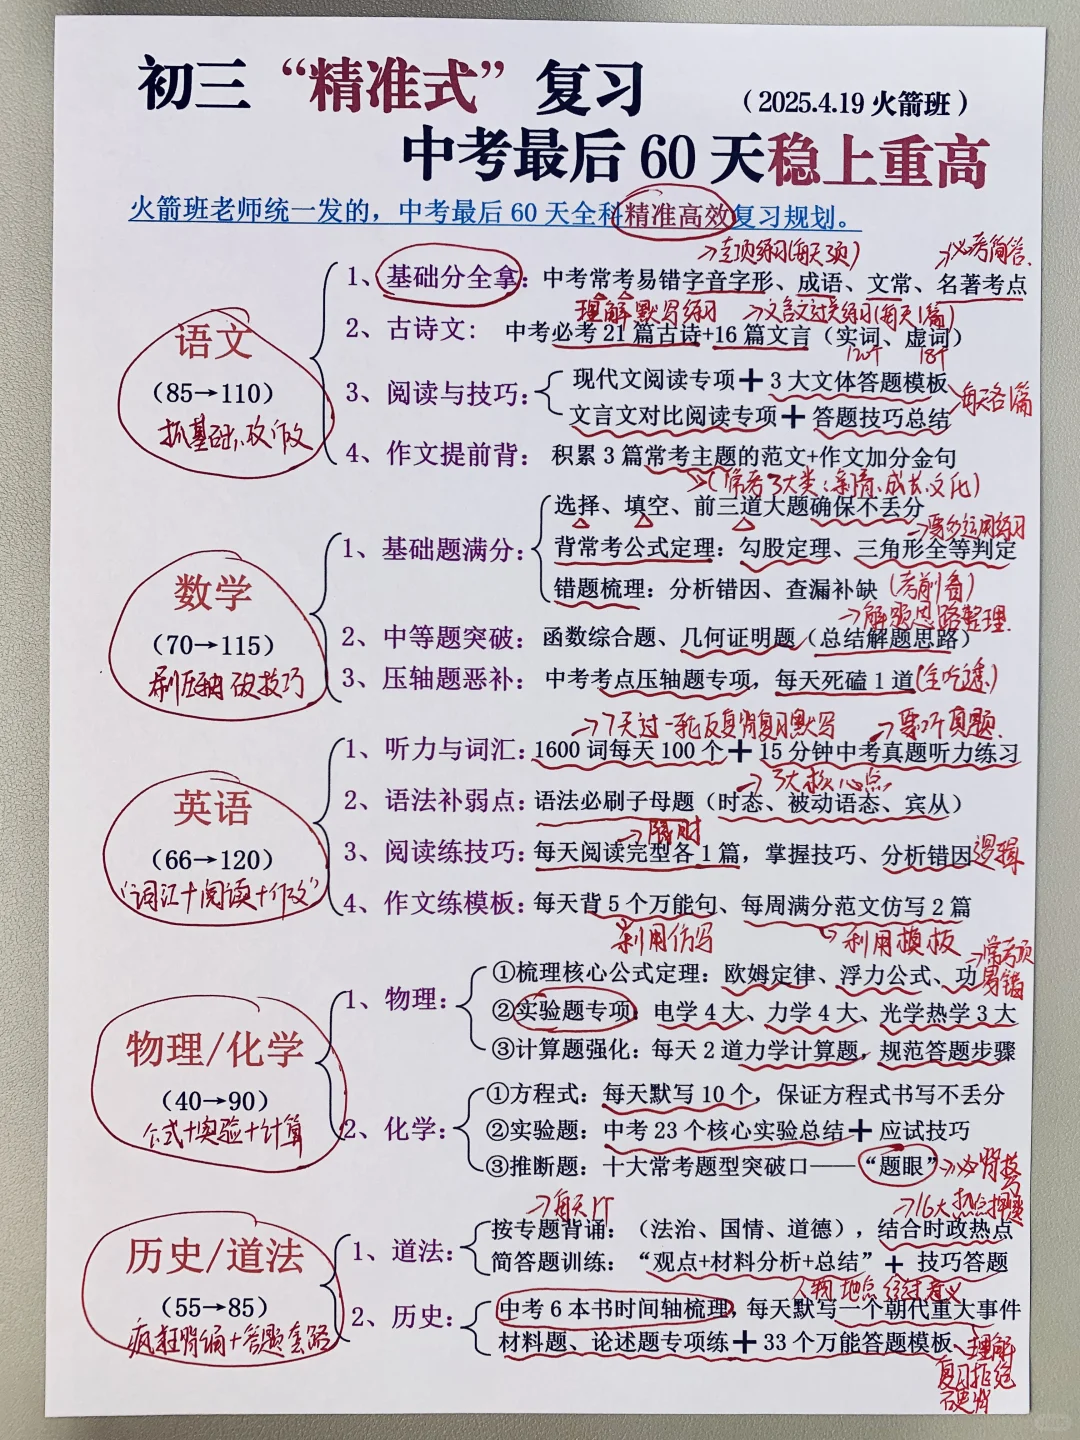 初三“精准式”复习
（2025.4.19 火箭班）
中考最后 60 天稳上重高
火箭班老师统一发的，中考最后 60 天全科精准高效复习规划。
→专项练习(每天1项)
→必考简答.
语文
（85→110）
抓基础、攻作文
1、基础分全拿：中考常考易错字音字形、成语、文常、名著考点
理解默写练习 →文言文过关练习(每天1篇)
2、古诗文： 中考必考 21 篇古诗+16 篇文言（实词、虚词）
120个 18个
3、阅读与技巧：
现代文阅读专项＋3 大文体答题模板
文言文对比阅读专项＋答题技巧总结
每天各1篇
4、作文提前背： 积累 3 篇常考主题的范文+作文加分金句
(常考3大类：亲情、成长、文化)
数学
（70→115）
刷压轴 破技巧
1、基础题满分：
选择、填空、前三道大题确保不丢分
→要多运用练习
背常考公式定理：勾股定理、三角形全等判定
错题梳理：分析错因、查漏补缺 (考前看)
→解题思路整理.
2、中等题突破：函数综合题、几何证明题（总结解题思路）
3、压轴题恶补： 中考考点压轴题专项，每天死磕 1 道(全吃透)
英语
（66→120）
“词汇+阅读+作文”
→7天过一轮反复背复习默写 →要听真题.
1、听力与词汇：1600 词每天 100 个＋15 分钟中考真题听力练习
→3大核心点
2、语法补弱点：语法必刷子母题（时态、被动语态、宾从）
→限时
3、阅读练技巧：每天阅读完型各 1 篇，掌握技巧、分析错因 逻辑
4、作文练模板：每天背 5 个万能句、每周满分范文仿写 2 篇
利用仿写 利用模板
物理/化学
（40→90）
公式+实验+计算
1、物理：
→常考项
①梳理核心公式定理：欧姆定律、浮力公式、功 易错
②实验题专项：电学 4 大、力学 4 大、光学热学 3 大
③计算题强化：每天 2 道力学计算题，规范答题步骤
2、化学：
①方程式：每天默写 10 个，保证方程式书写不丢分
②实验题：中考 23 个核心实验总结＋应试技巧
③推断题：十大常考题型突破口——“题眼”
→每天1个
历史/道法
（55→85）
疯狂背诵+答题套路
1、道法：
按专题背诵：（法治、国情、道德），结合时政热点
简答题训练：“观点+材料分析+总结” ＋ 技巧答题
人物 地点 经过 意义
2、历史：
中考 6 本书时间轴梳理，每天默写一个朝代重大事件
材料题、论述题专项练＋33 个万能答题模板
理解
复习拒绝
硬背